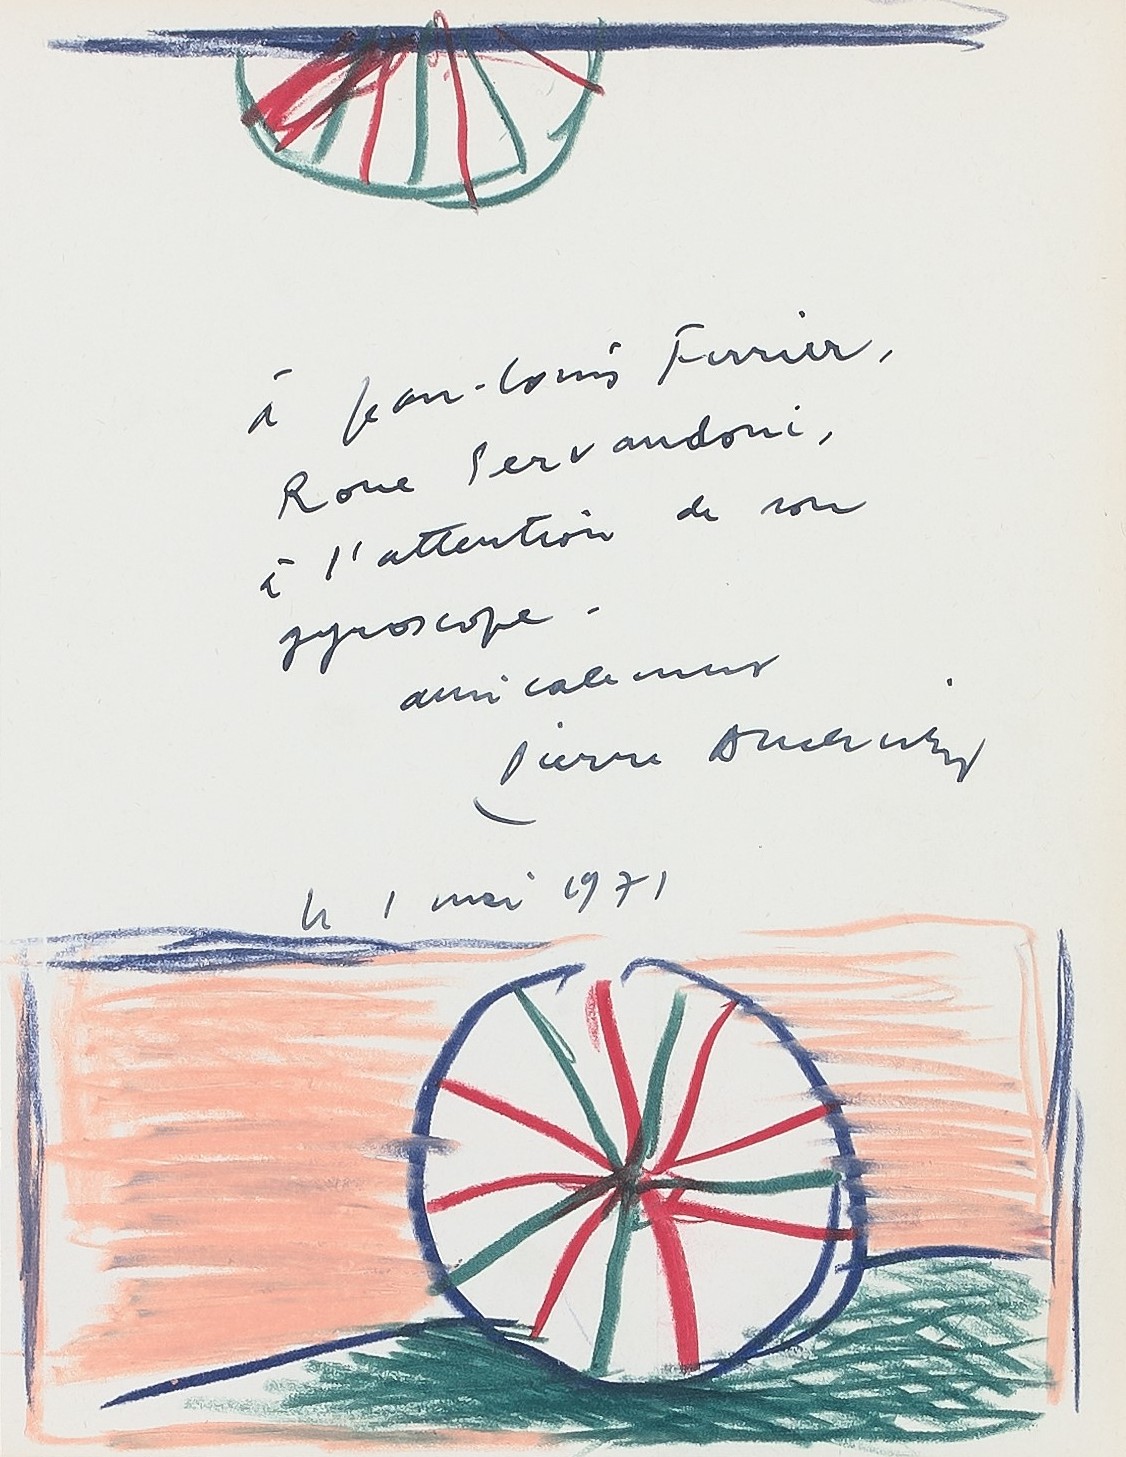 à Jean-Louis Ferrier,
Roue Servandoni,
à l'attention de son
gyroscope -
amicalement
Pierre Alechinsky
le 1 mai 1971